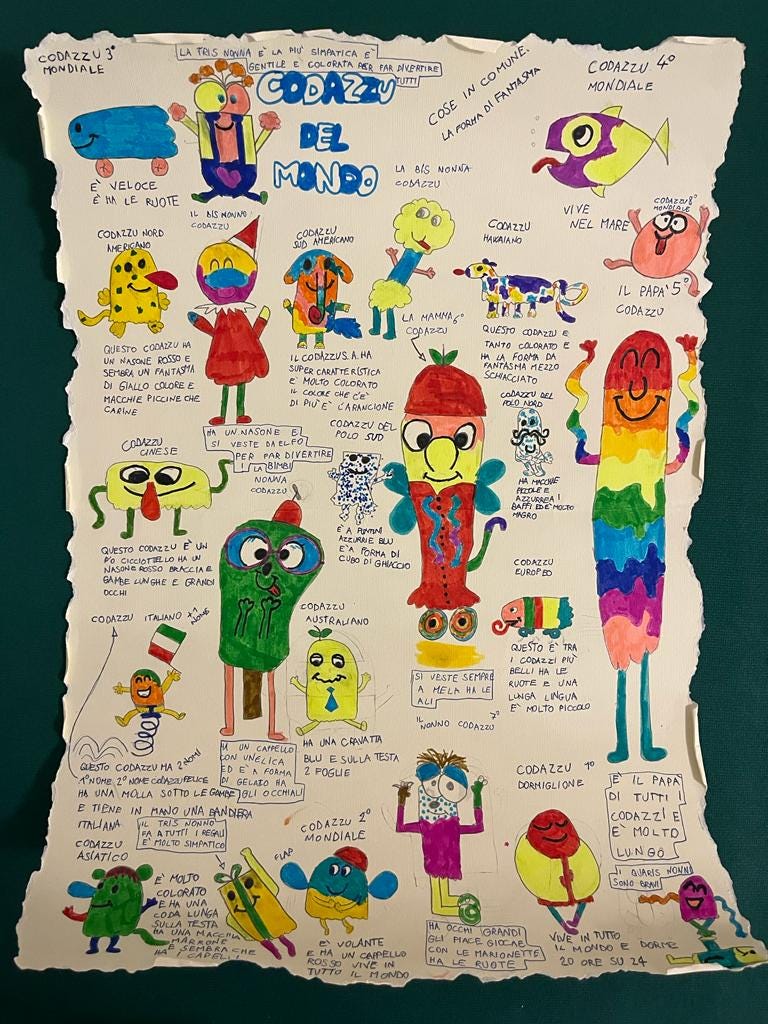 CODAZZU 3°
MONDIALE
LA TRIS NONNA È LA PIÙ SIMPATICA E
GENTILE E COLORATA PER FAR DIVERTIRE
TUTTI
CODAZZU
DEL
MONDO
COSE IN COMUNE.
LA FORMA DI FANTASMA
CODAZZU 4°
MONDIALE
È VELOCE
E HA LE RUOTE
LA BIS NONNA
CODAZZU
VIVE
NEL MARE
CODAZZU 8°
MONDIALE
IL BIS NONNO
CODAZZU
CODAZZU NORD
AMERICANO
CODAZZU
SUD AMERICANO
CODAZZU
HAWAIANO
IL PAPA' 5°
CODAZZU
LA MAMMA 6°
CODAZZU
QUESTO CODAZZU HA
UN NASONE ROSSO E
SEMBRA UN FANTASMA
DI GIALLO COLORE E
MACCHIE PICCINE CHE
CARINE
IL CODAZZU S.A. HA
SUPER CARATTERISTICA
E MOLTO COLORATO
IL COLORE CHE C'È
DI PIÙ È L'ARANCIONE
QUESTO CODAZZU È
TANTO COLORATO E
HA LA FORMA DA
FANTASMA MEZZO
SCHIACCIATO
HA UN NASONE E
SI VESTE DA ELFO
PER FAR DIVERTIRE
I BIMBI
CODAZZU DEL
POLO SUD
CODAZZU DEL
POLO NORD
CODAZZU
CINESE
LA
NONNA
CODAZZU
HA MACCHIE
PICCOLE E
AZZURRE A I
BAFFI ED È MOLTO
MAGRO
È A PUNTINI
AZZURRI E BLU
E A FORMA DI
CUBO DI GHIACCIO
QUESTO CODAZZU È UN
PO CICCIOTTELLO HA UN
NASONE ROSSO BRACCIA E
GAMBE LUNGHE E GRANDI
OCCHI
CODAZZU
EUROPEO
CODAZZU ITALIANO +1
NOME
CODAZZU
AUSTRALIANO
QUESTO È TRA
I CODAZZI PIÙ
BELLI HA LE
RUOTE E UNA
LUNGA LINGUA
È MOLTO PICCOLO
SI VESTE SEMPRE
A MELA HA LE
ALI
IL
NONNO CODAZZU 7°
HA UN CAPPELLO
CON UN'ELICA
ED È A FORMA
DI GELATO HA
GLI OCCHIALI
HA UNA CRAVATTA
BLU E SULLA TESTA
2 FOGLIE
QUESTO CODAZZU HA 2 NOMI
1° NOME, 2° NOME CODAZZU FELICE
HA UNA MOLLA SOTTO LE GAMBE
E TIENE IN MANO UNA BANDIERA
ITALIANA
IL TRIS NONNO
FA A TUTTI I REGALI
È MOLTO SIMPATICO
CODAZZU 2°
MONDIALE
CODAZZU 1°
DORMIGLIONE
È IL PAPA
DI TUTTI I
CODAZZI E
È MOLTO
LUNGO
CODAZZU
ASIATICO
FLAP
I QUARIS NONNI
SONO BRAVI
È MOLTO
COLORATO
E HA UNA
CODA LUNGA
SULLA TESTA
HA UNA MACCHIA
MARRONE
E SEMBRA CHE
HA I CAPELLI
È VOLANTE
E HA UN CAPPELLO
ROSSO VIVE IN
TUTTO IL MONDO
HA OCCHI GRANDI
GLI PIACE GIOCARE
CON LE MARIONETTE
HA LE RUOTE
VIVE IN TUTTO
IL MONDO E DORME
20 ORE SU 24